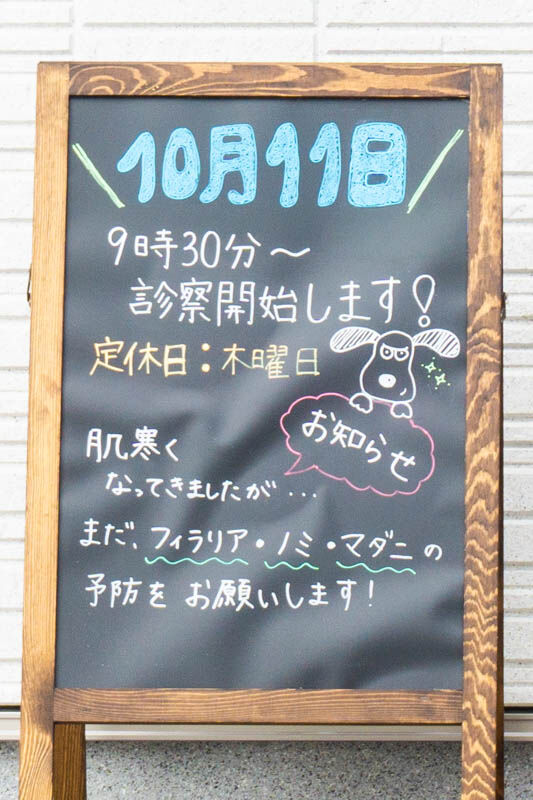 10月11日
9時30分〜
診察開始します!
定休日：木曜日
お知らせ
肌寒く
なってきましたが...
まだ、フィラリア・ノミ・マダニの
予防をお願いします!